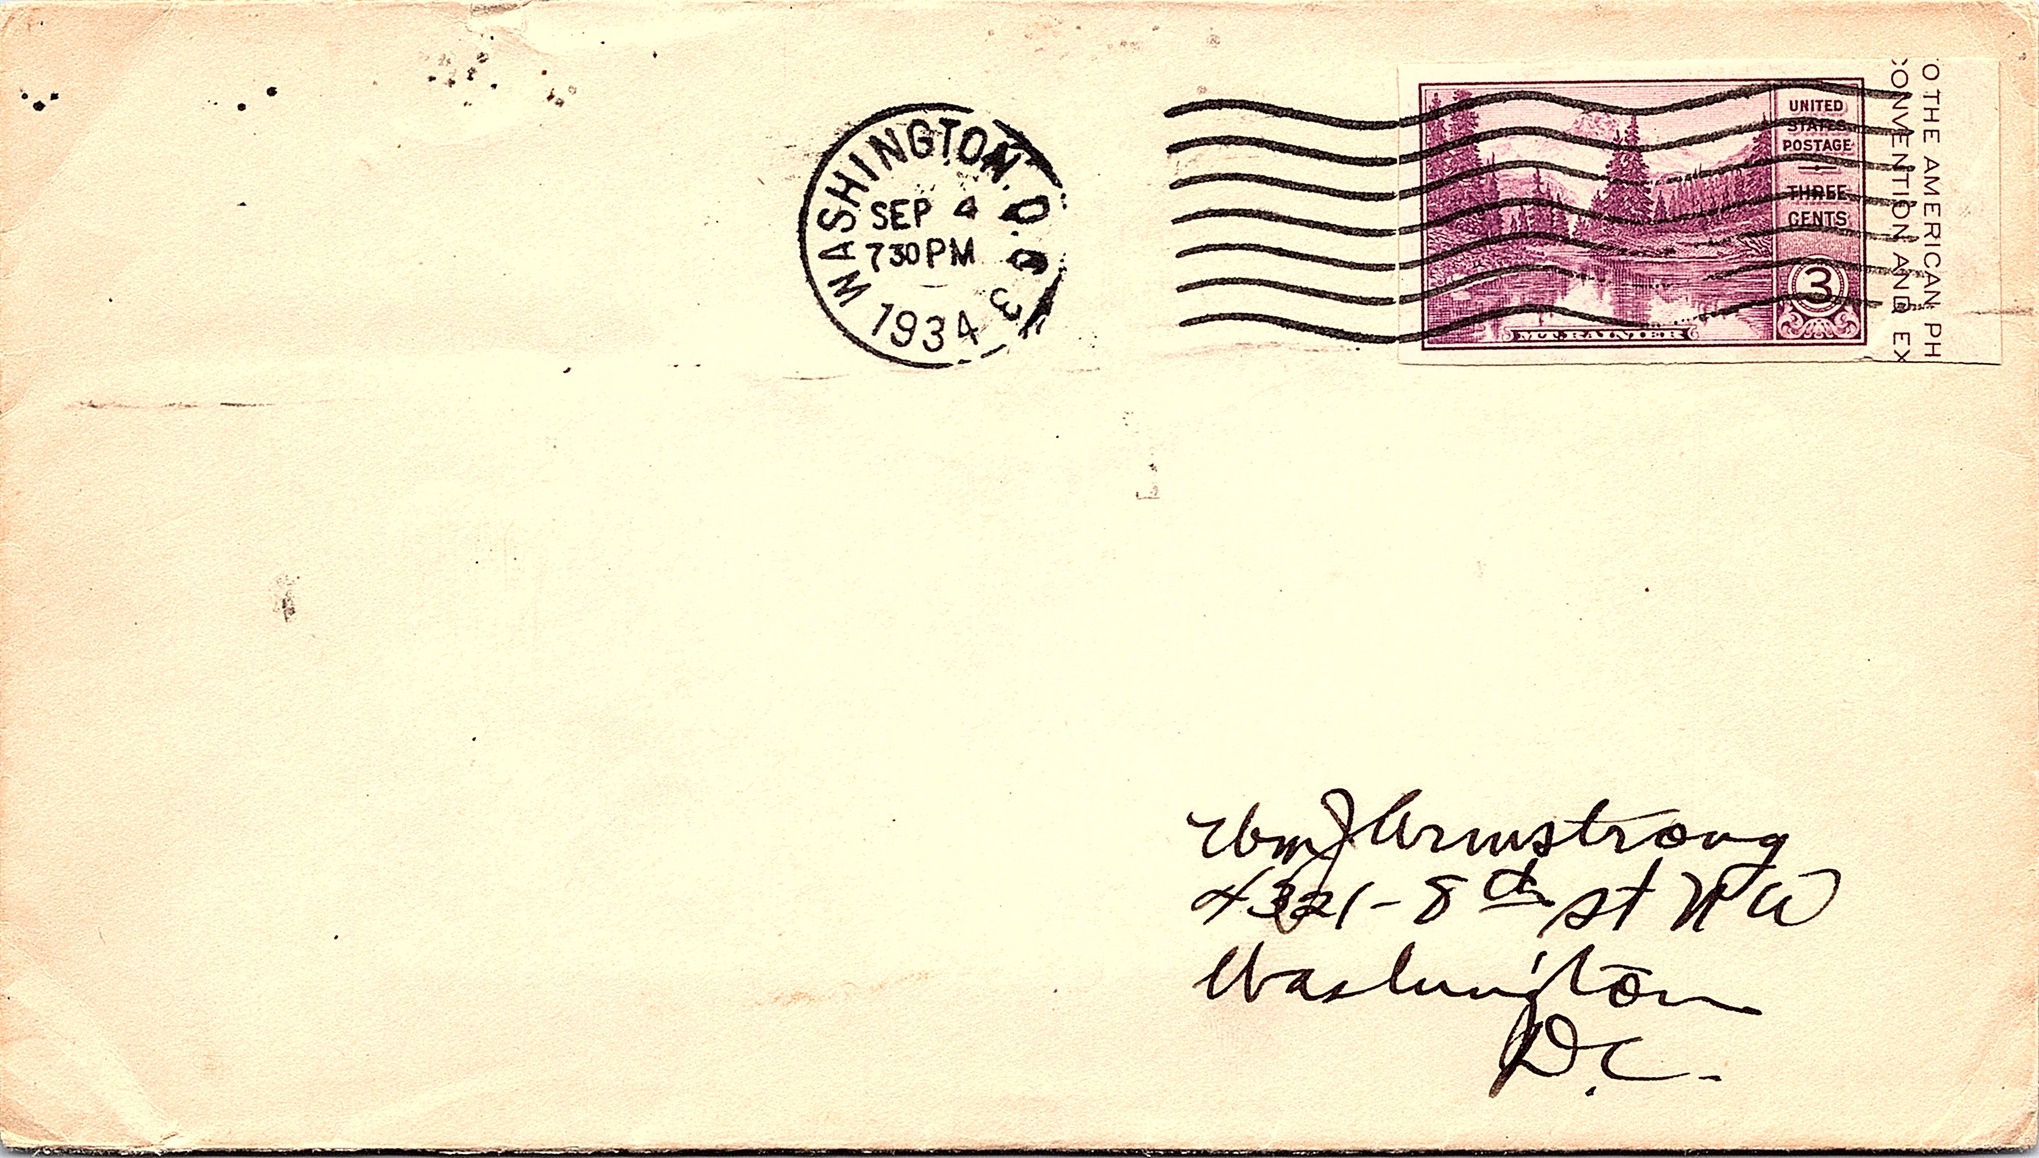 WASHINGTON, D.C. 3
SEP 4
730PM
1934
UNITED
STATES
POSTAGE
THREE
CENTS
3
MT. RAINIER
O THE AMERICAN PH
CONVENTION AND EX
Wm J Armstrong
4321-8th St NW
Washington
D.C.